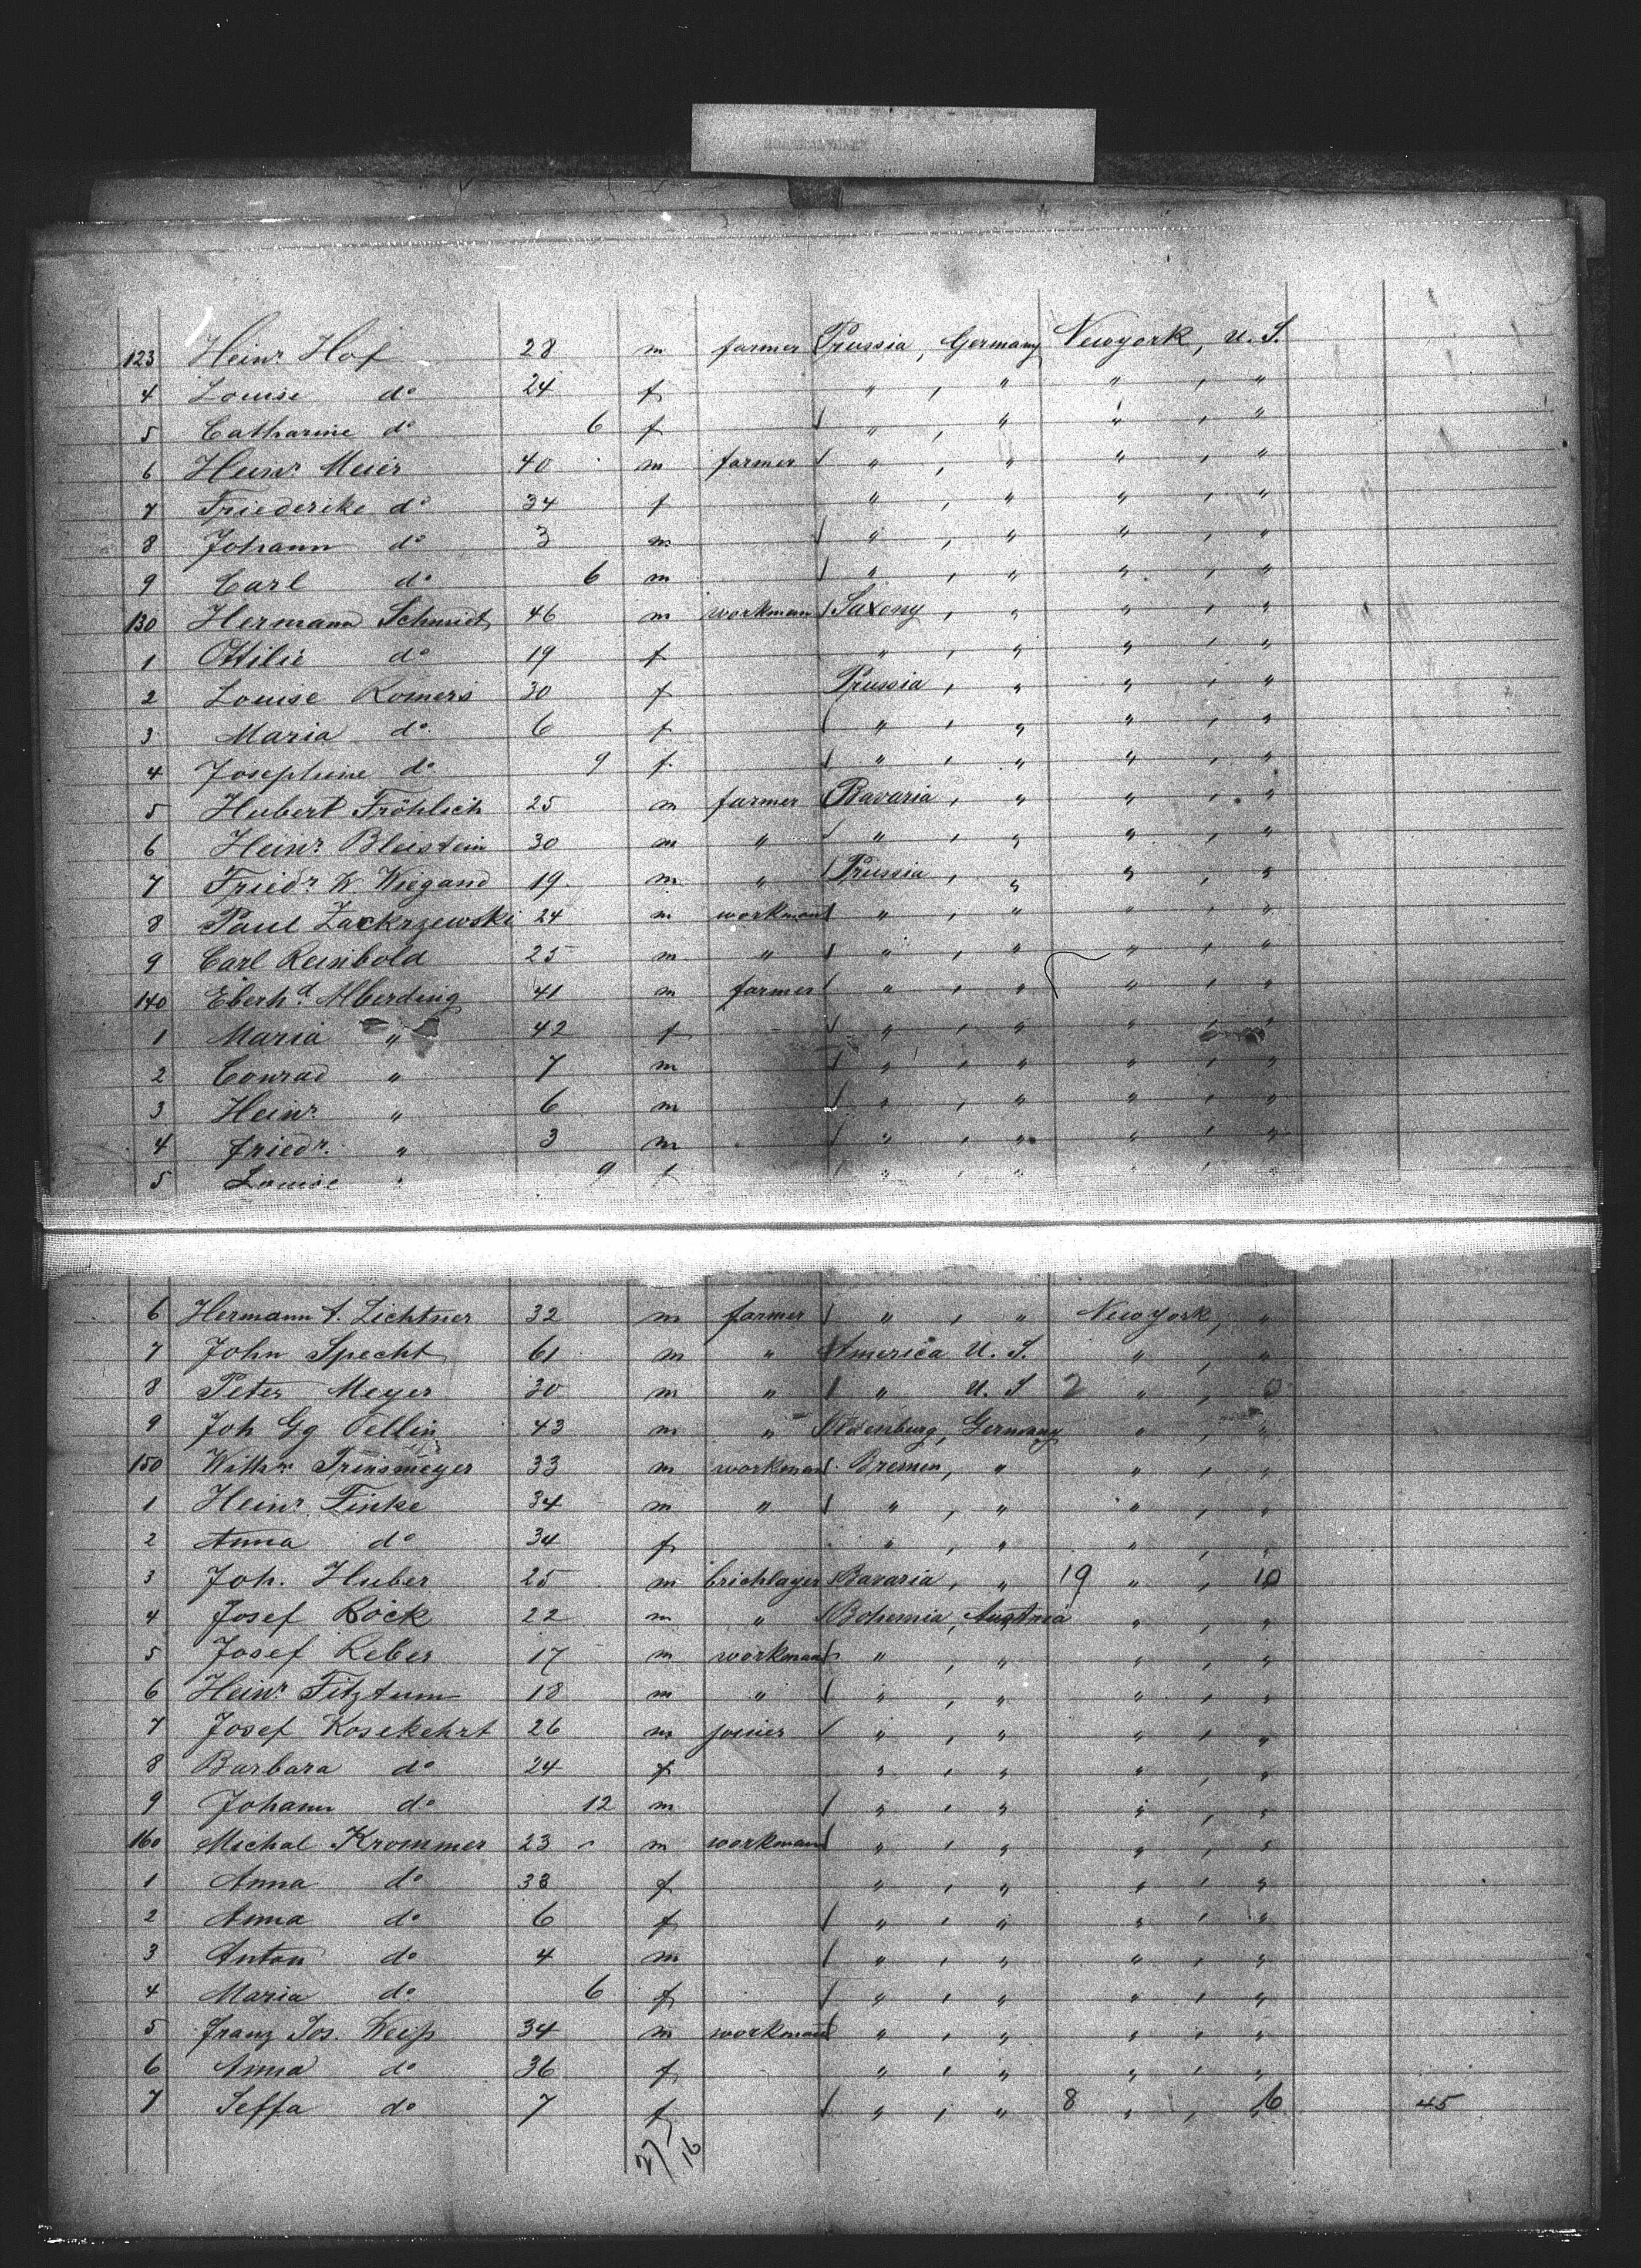 123 Heinr Hof 28 m farmer Prussia, Germany Newyork, U.S.
4 Louise do 24 f " , " " , "
5 Catharine do 6 f " , " " , "
6 Heinr Meier 40 m farmer " , " " , "
7 Friederike do 34 f " , " " , "
8 Johann do 3 m " , " " , "
9 Carl do 6 m " , " " , "
130 Hermann Schmidt 46 m workman Saxony, " " , "
1 Ottilie do 19 f " , " " , "
2 Louise Romers 30 f Prussia, " " , "
3 Maria do 6 f " , " " , "
4 Josephine do 9 f " , " " , "
5 Hubert Fröhlich 25 m farmer Bavaria, " " , "
6 Heinr Bleistein 30 m " " , " " , "
7 Friedr W. Wiegand 19 m " Prussia, " " , "
8 Paul Zackrzewski 24 m workman " , " " , "
9 Carl Reinbold 25 m " " , " " , "
140 Eberhd Alberding 41 m farmer " , " " , "
1 Maria " 42 f " , " " , "
2 Conrad " 7 m " , " " , "
3 Heinr " 6 m " , " " , "
4 Friedr. " 3 m " , " " , "
5 Louise " 9 f " , " " , "
6 Hermann A. Lichtner 32 m farmer " , " New York, "
7 John Specht 61 m " America U.S. " , "
8 Peter Meyer 30 m " " U.S 2 " , 0
9 Joh Gg Oellin 43 m " Oldenburg, Germany " , "
150 Wilhm Trinsmeyer 33 m workman Bremen, " " , "
1 Heinr Finke 34 m " " , " " , "
2 Anna do 34 f " , " " , "
3 Joh. Huber 25 m brichlayer Bavaria, " 19 " , 10
4 Josef Böck 22 m " Bohemia, Austria " , "
5 Josef Reber 17 m workman " , " " , "
6 Heinr Fitztum 18 m " " , " " , "
7 Josef Kosekehrt 26 m joiner " , " " , "
8 Barbara do 24 f " , " " , "
9 Johann do 12 m " , " " , "
160 Michal Krommer 23 m workman " , " " , "
1 Anna do 33 f " , " " , "
2 Anna do 6 f " , " " , "
3 Anton do 4 m " , " " , "
4 Maria do 6 f " , " " , "
5 Franz Jos. Weiß 34 m workman " , " " , "
6 Anna do 36 f " , " " , "
7 Seffa do 7 f " , " 8 " , 6 45
27/16